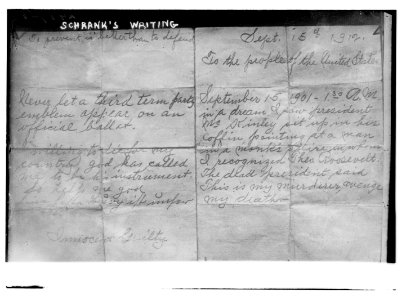 SCHRANK'S WRITING
To prevent is better than to defend
Never let a third term party
emblem appear on an
official ballot.
I willing to die for my
country, god has called
me to be his instrument
So help me god
Innocent Guilty
Sept. 15th 1912.
To the people of the United States
September 15, 1901 - 1:30 A.M.
in a dream I saw president
McKinley sit up in his
coffin pointing at a man
in a monk's attire in whom
I recognized Theo. Roosevelt.
The dead president said
This is my murderer, avenge
my death